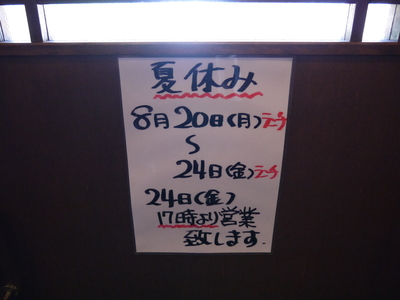 夏休み
8月20日(月)ランチ
〜
24日(金)ランチ
24日(金)
17時より営業
致します.